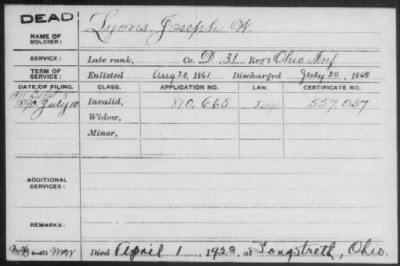 DEAD
NAME OF SOLDIER: Lyons, Joseph W.
SERVICE: Late rank, Co. D. 31 Reg't Ohio Inf
TERM OF SERVICE: Enlisted Aug 20, 1861 Discharged July 20, 1865
DATE OF FILING. CLASS. APPLICATION NO. LAW. CERTIFICATE NO.
1890 July 10 Invalid, 557.037
Widow,
Minor,
ADDITIONAL SERVICES:
REMARKS:
Died April 1, 1923, at Longstreth, Ohio.